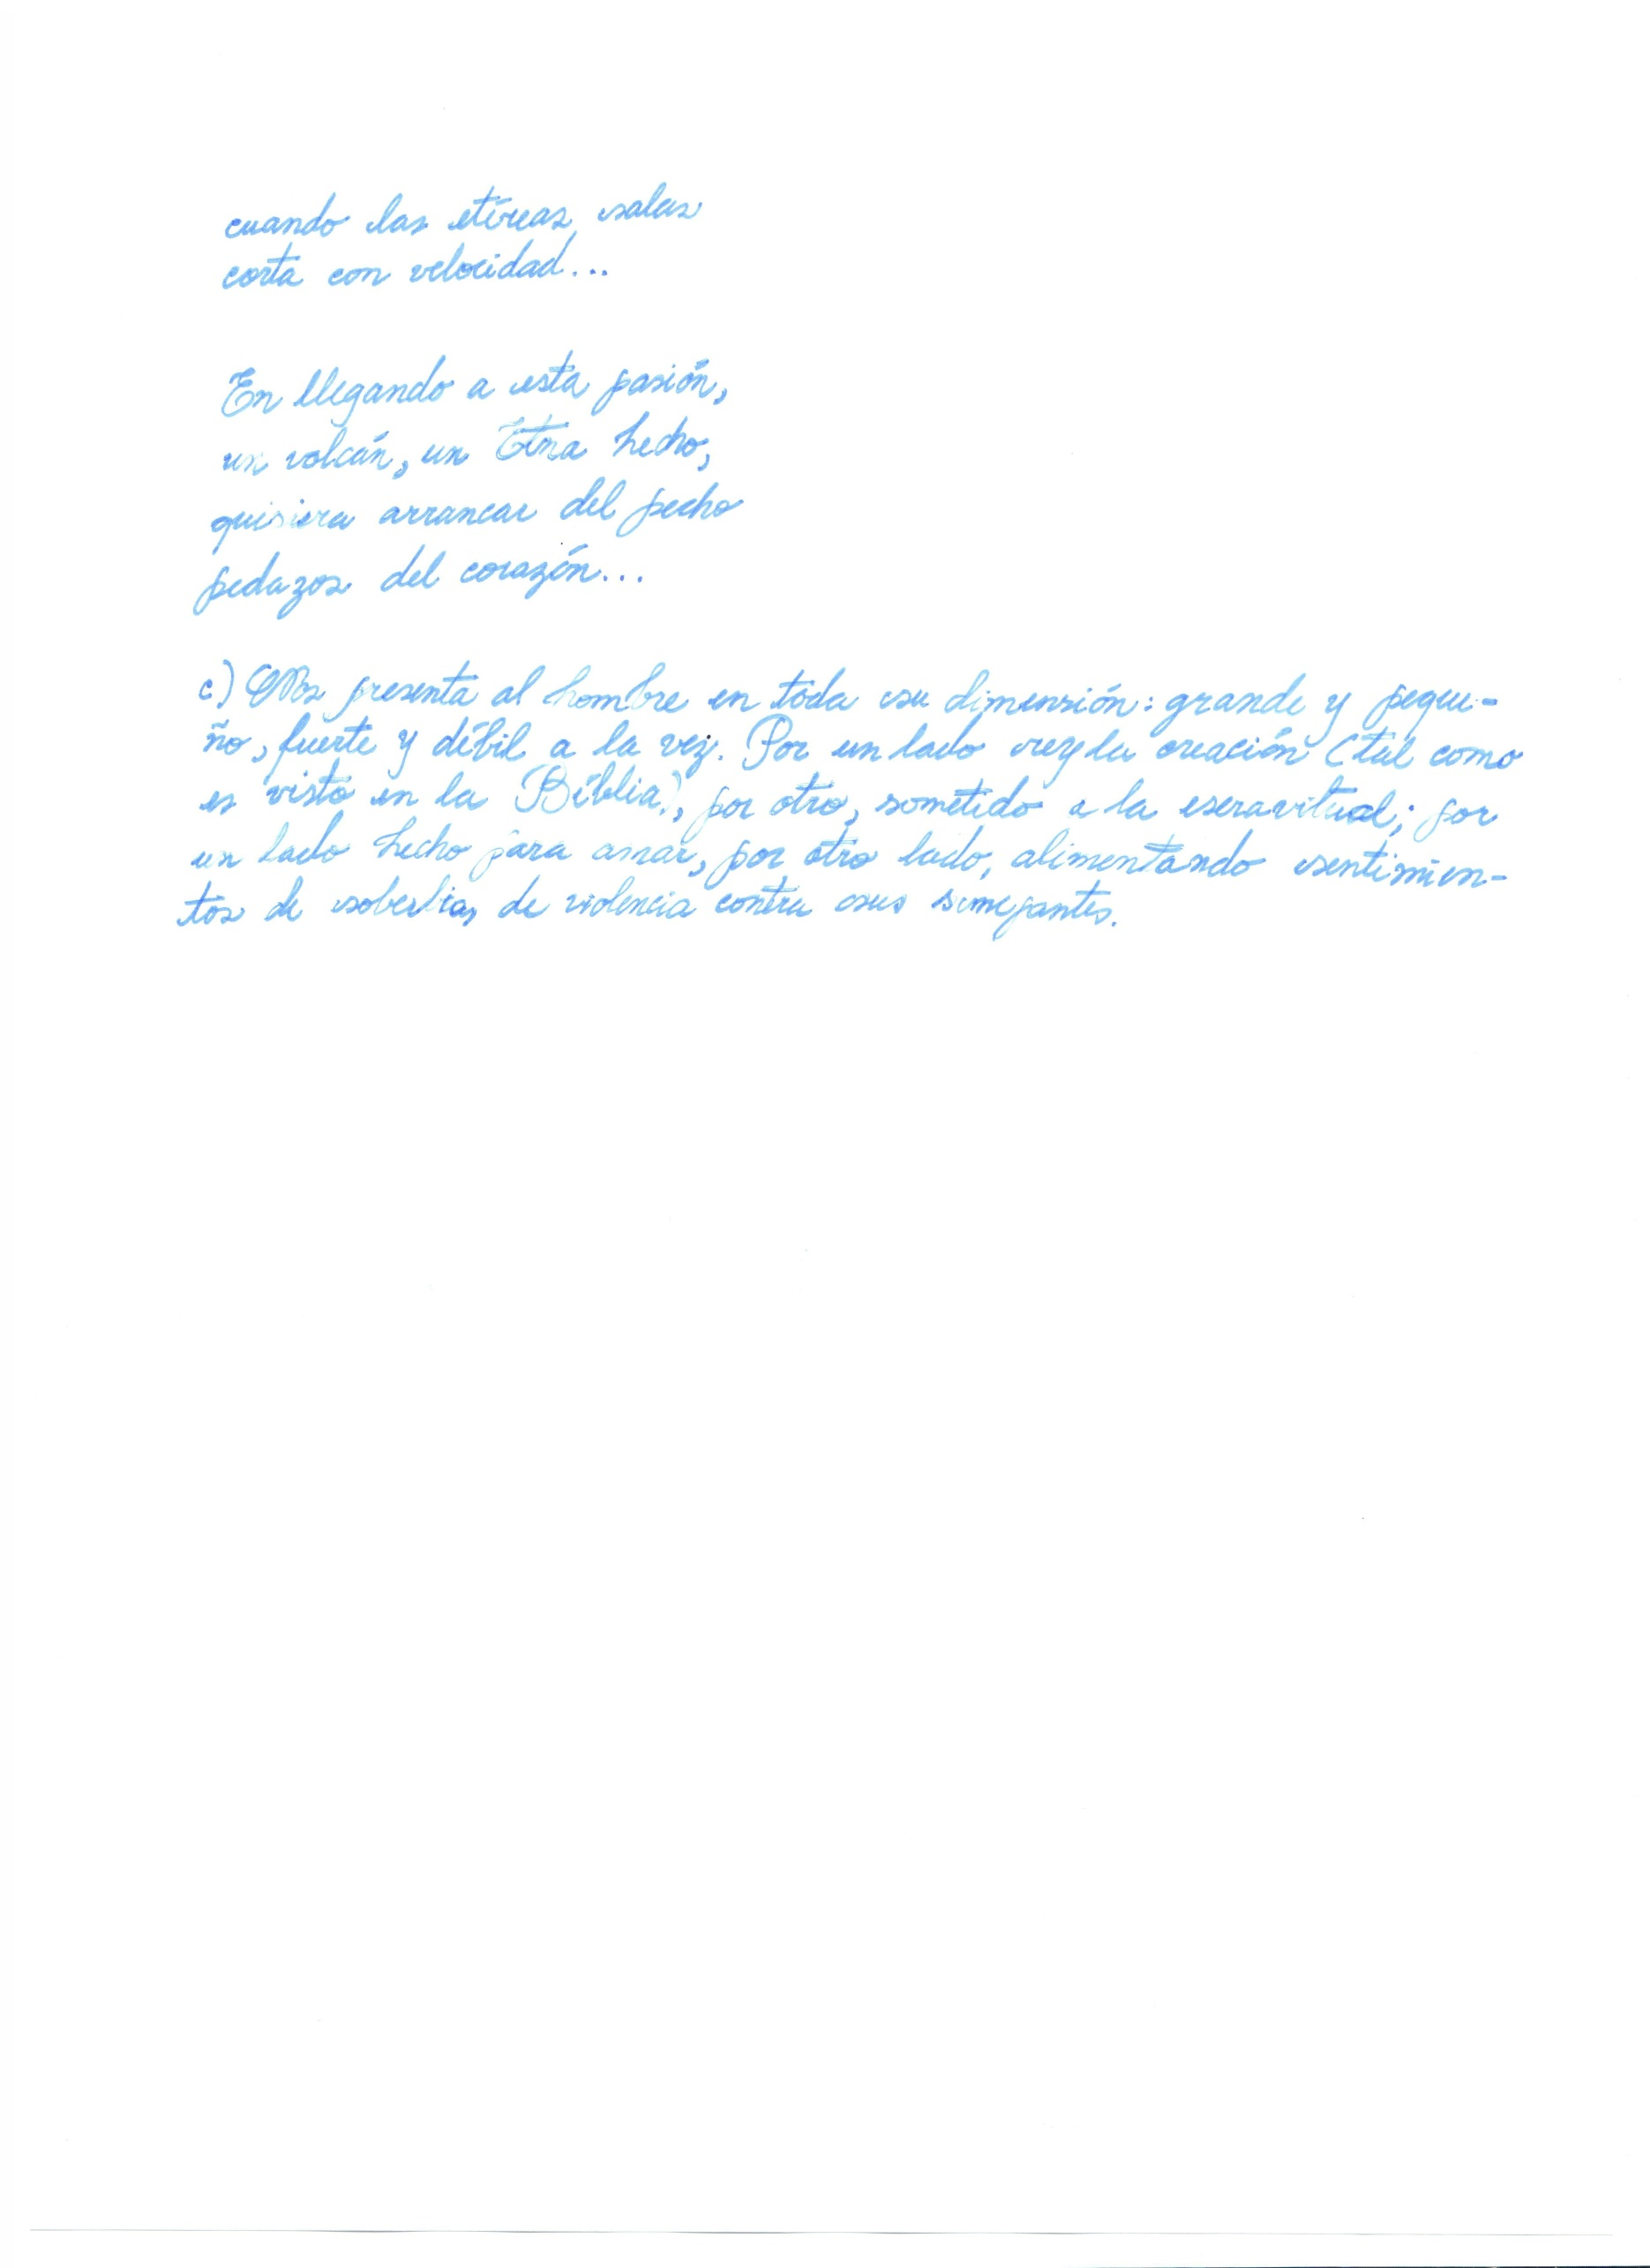 cuando las etéreas salas
corta con velocidad...
En llegando a esta pasión,
un volcán, un Etna hecho,
quisiera arrancar del pecho
pedazos del corazón...
c) Nos presenta al hombre en toda su dimensión: grande y peque-
ño, fuerte y débil a la vez. Por un lado rey la creación (tal como
es visto en la Biblia), por otro, sometido a la escravitud; por
un lado hecho para amar, por otro lado, alimentando sentimien-
tos de soberbia, de violencia contra sus semejantes.